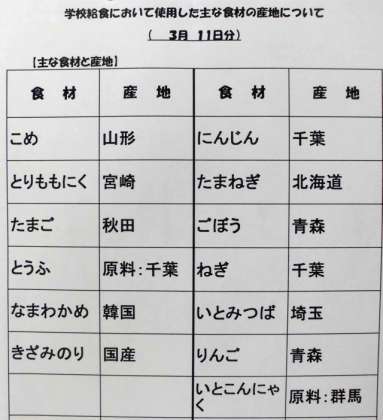 学校給食において使用した主な食材の産地について
( 3月 11日分)
【主な食材と産地】
食 材 産 地 食 材 産 地
こめ 山形 にんじん 千葉
とりももにく 宮崎 たまねぎ 北海道
たまご 秋田 ごぼう 青森
とうふ 原料:千葉 ねぎ 千葉
なまわかめ 韓国 いとみつば 埼玉
きざみのり 国産 りんご 青森
いとこんにゃく 原料:群馬